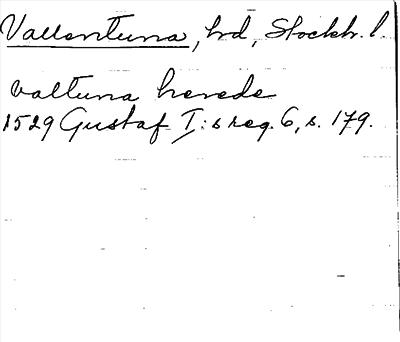 Vallentuna, hd, Stockh. l.
valtuna herede
1529 Gustaf I:s reg. 6, s. 179.